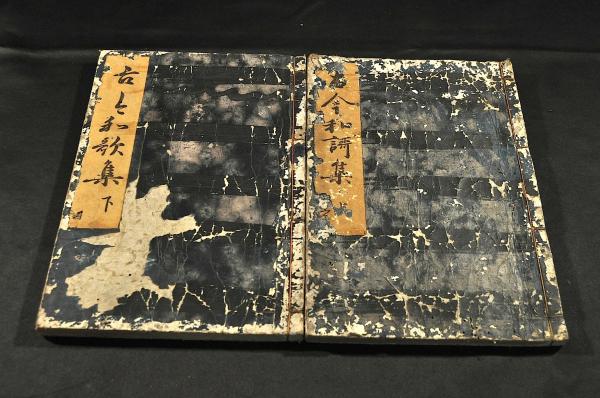 今和謌集
古今和歌集 下